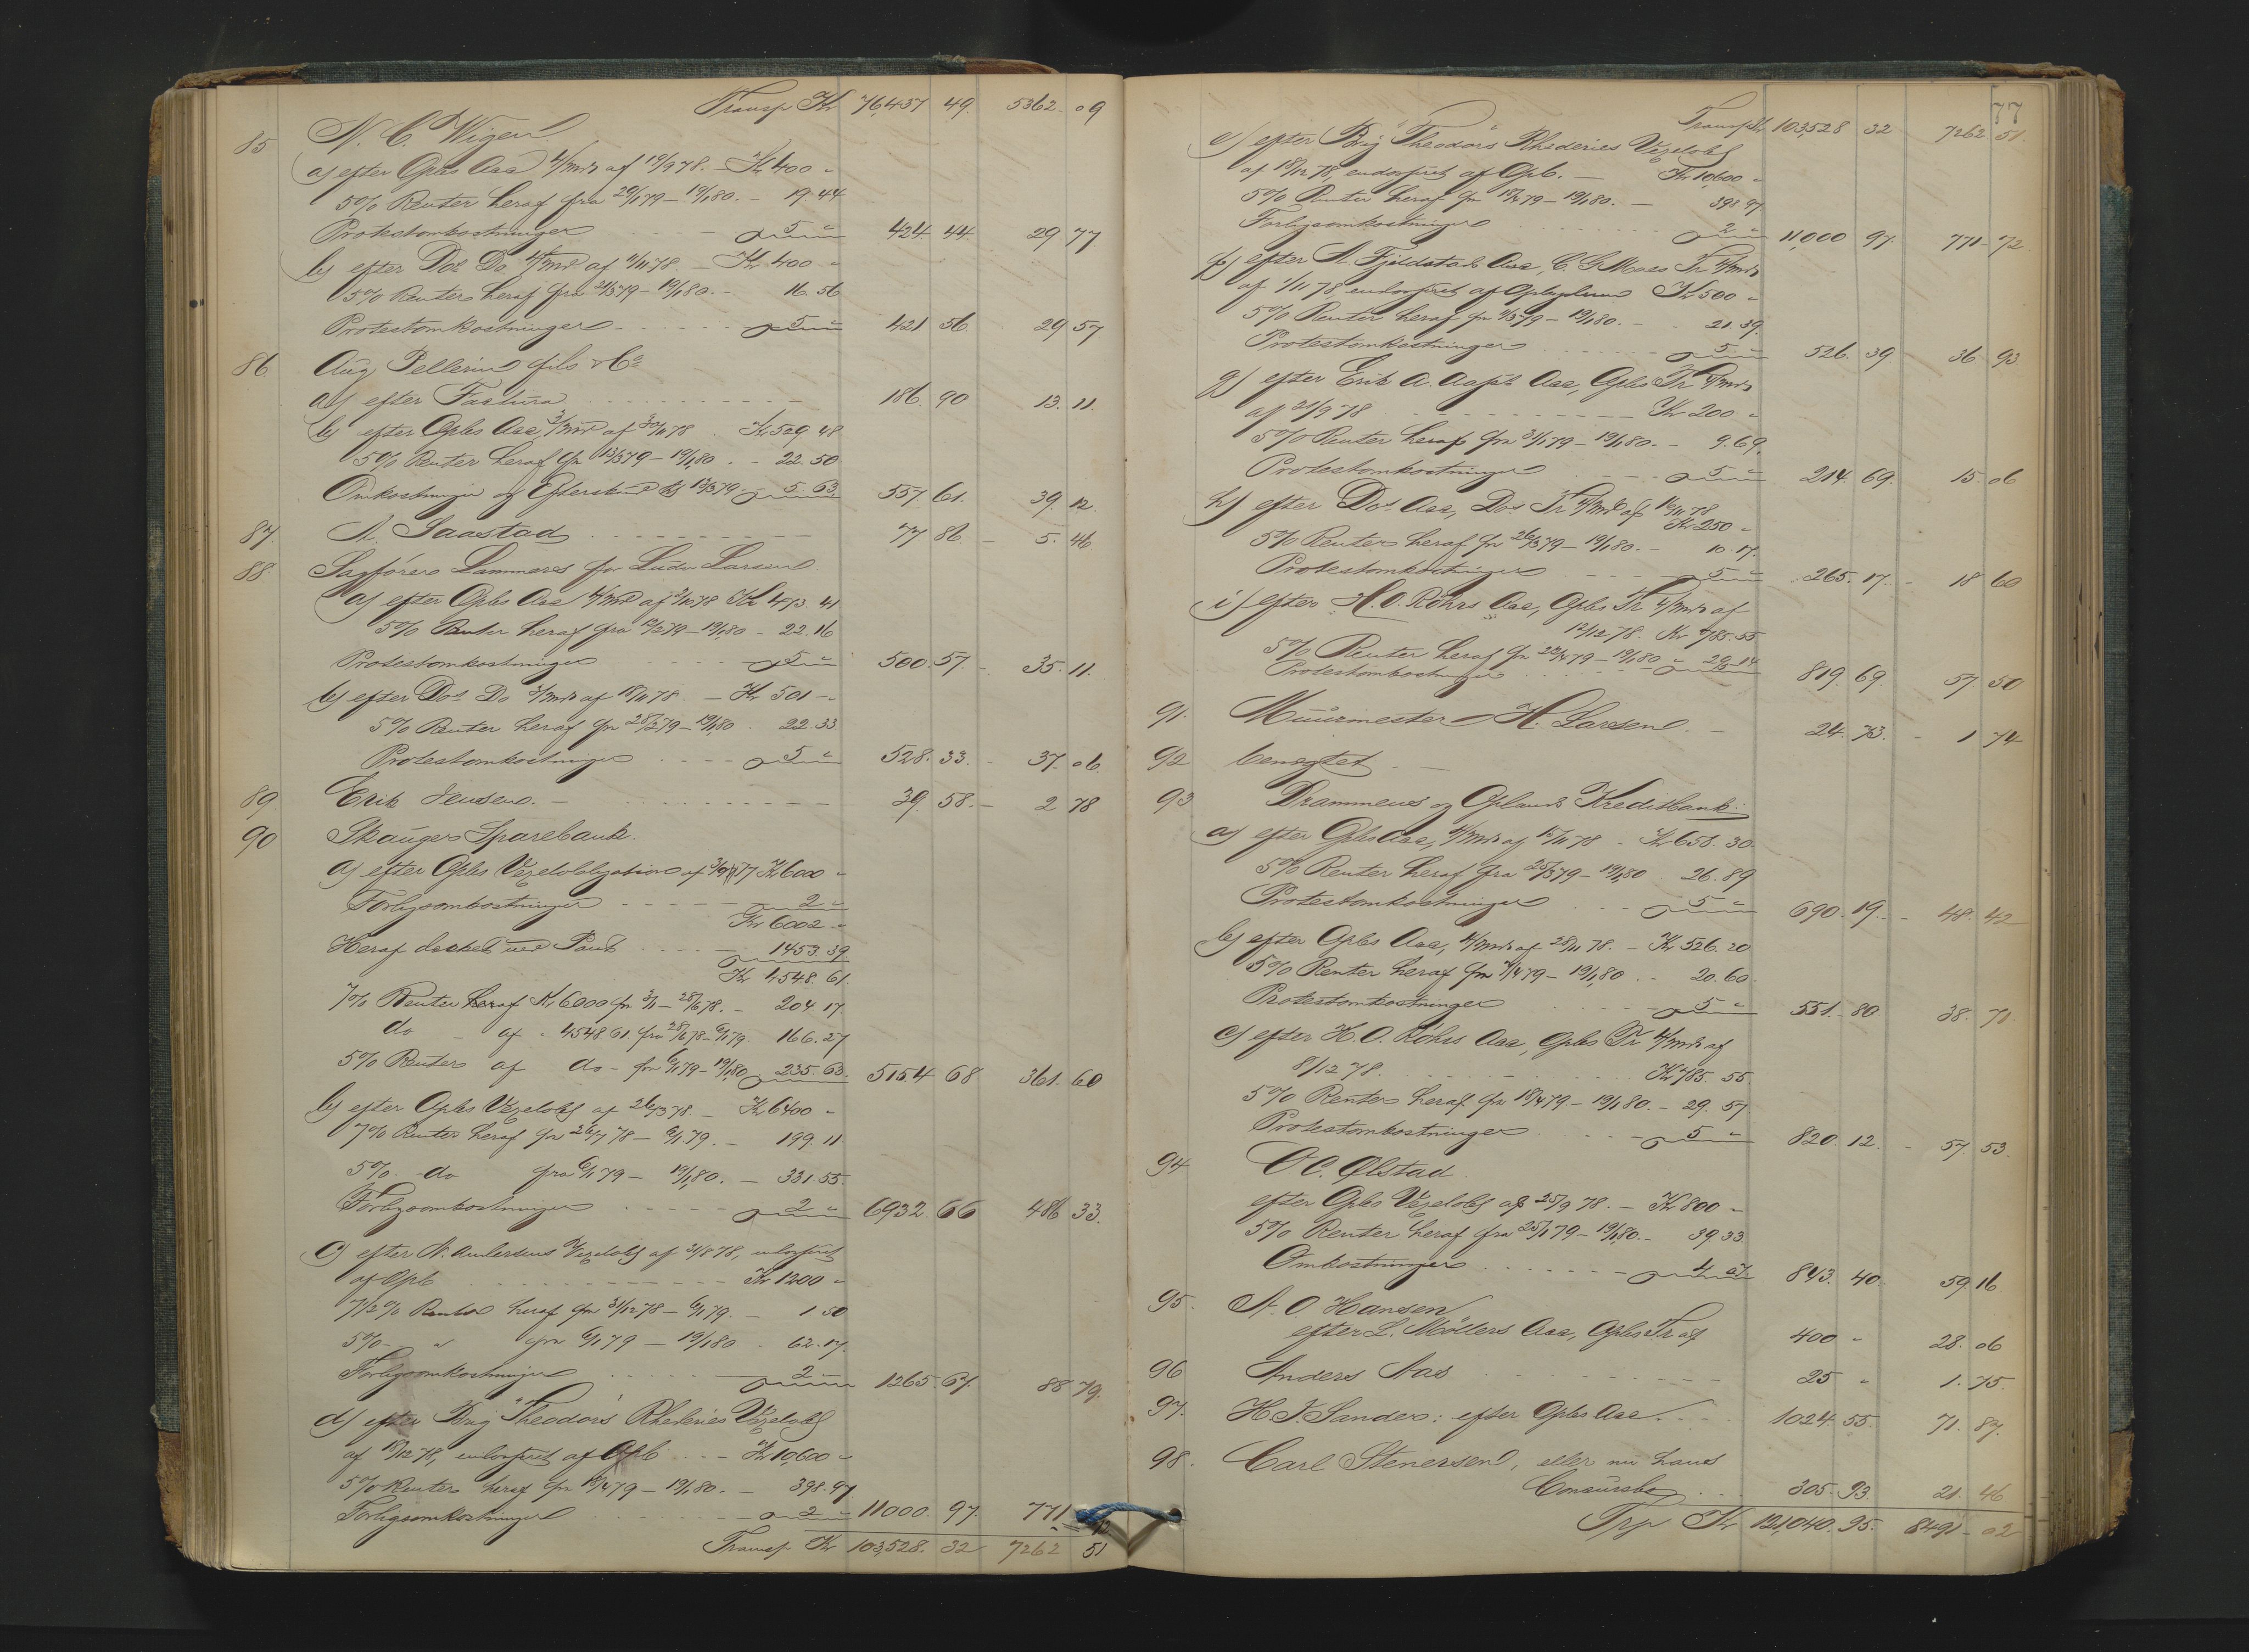 Transp Kr 76,457 49. 5362 09
85 N. C. Wigen
a) efter Opbs Acc 4/mnd af 19/9 78. - Kr 400 "
5% Renter heraf fra 20/1 79 - 19/1 80. - 19.44
Protestomkostninger - 5 " 424.44. 29 77
b) efter Dos Do 4/mnd af 11/78 - Kr 400 "
5% Renter heraf fra 21/3 79 - 19/1 80. - 16.56
Protestomkostninger - 5 " 421 56. 29 57
86. Aug Pellerin fils & Co
a) efter Factura 186.90 13.11.
b) efter Opbs Acc, 3/mnd af 30/11 78 Kr 529 48
5% Renter heraf fr 13/3 79 - 19/1 80. - 22.50
Omkostninger og 13/3 79 - 5.63 557.61. 39.12.
87. A. Saastad 77 86 - 5.46
88. Sagfører Lammers for Ludv Larsen
a) efter Opbs Acc 4/mnd af 2/10 78 Kr 473.41
5% Renter heraf fra 12/2 79 - 19/1 80 - 22.16
Protestomkostninger - 5 " 500.57. - 35.11.
b) efter Dos Do 3/mnd af 18/11 78 - Kr 501 - "
5% Renter heraf fr 28/2 79 - 19/1 80. 22.33
Protestomkostninger - 5 " 528.33. - 37.06.
89. Erik Jensen. - 39.58. - 2 78
90 Skauger Sparebank.
a) efter Opbs Vexelobligation af 77 Kr 6000 "
Forligsomkostninger - 2 "
Kr 6002 "
Heraf dækket ved Pant - 1453.39
Kr 4548.61
7% Renter heraf Kr 6000 fr 3/1 - 28/6 78. - 204.17
do - af " 4548 61 fra 28/6 78 - 6/1 79 166.27
5% Renter af do - fra 6/1 79 - 19/1 80 235.63. 5154 68 361.60
b) efter Opbs Vexelobl af 26/3 78. - Kr 6400 "
7% Renter heraf fra 26/7 78 - 6/1 79. - 199.11
5% - do fra 6/1 79 - 19/1 80. - 331.55.
Forligsomkostninger - 2 " 6932.66 486 33.
c) efter A. Andersens Vexelobl af 31/8 78, endosseret
af Opb Kr 1200 "
7 1/2% Renter heraf fra 31/12 78 - 6/1 79. - 1 50
5% - " fra 6/1 79 - 19/1 80. 62.17.
Forligsomkostninger - 2 - 1265.67. 88 79.
d) efter Brig "Theodors" Rhederies Vexelobl
af 18/12 78, endosseret af Opb - Kr 10,600 "
5% Renter heraf fr 18/4 79 - 19/1 80. - 398.97
Forligsomkostninger - 2 " 11000 97. 771 72
Transp Kr 103,528.32 7262 51
77
Transp Kr 103,528 32 7262 51
e) efter Brig "Theodors" Rhederies Vexelobl
af 18/12 78, endosseret af Opb. - Kr 10,600 "
5% Renter heraf fr 18/4 79 - 19/1 80. - 398 97
Forligsomkostninger 2 " 11,000 97. 771 - 72
f) efter A. Fjeldstad Acc, C. G Moes Tr 4/mnd
af 1/11 78, endosseret af Kr 500 "
5% Renter heraf fr 79 - 19/1 80. - 21.39.
Protestomkostninger 5 " 526.39 36 93
g) efter Erik A. Acc, Opbs Tr 4/mnd
af 21/9 78 Kr 200 "
5% Renter heraf fra 31/1 79 - 19/1 80. - 9.69.
Protestomkostninger 5 " 214.69. 15.06
h) efter Dos Acc, Dos Tr 4/mnd af 16/11 78
Kr 250 "
5% Renter heraf fr 26/3 79 - 19/1 80. - 10.17.
Protestomkostninger 5 " 265.17. - 18 60
i) efter H. O. Röhrs Acc, Opbs Tr 4/mnd af
12/12 78. Kr 785.55
5% Renter heraf fr 22/4 79 - 19/1 80 " 29.14
Protestomkostninger 5 819.69. 57.50
91. Muurmester H. Larsen. - 24.73. - 1 74
92 benegtet -
93 Drammens og Oplands Kreditbank:
a) efter Opbs Acc, 4/mnd af 15/11 78 - Kr 658.30
5% Renter heraf fra 25/3 79 - 19/1 80 26.89
Protestomkostninger 5 " 690.19. - 48.42
b) efter Opbs Acc, 4/mnd af 28/11 78. - Kr 526.20
5% Renter heraf fra 79 - 19/1 80. - 20.60.
Protestomkostninger 5 " 551. - 80 38.71.
c) efter H. O. Röhrs Acc, Opbs Tr 4/mnd af
8/12 78 Kr 785.55
5% Renter heraf fra 18/4 79 - 19/1 80. - 29.57
Protestomkostninger 5 " 820.12. - 57.53.
94 O C. Ølstad
efter Opbs Vexelobl af 25/9 78. - Kr 800 "
5% Renter heraf fra 25/1 79 - 19/1 80. - 39 33
Omkostninger 4 07. 843.40. 59.16
95. A. O. Hansen
efter L. Möllers Acc, Opbs Tr af 400 " 28.06
96 Anders Aas 25 " 1.75.
97. H. J. Sander: efter Opbs Acc. 1024 55. 71.87.
98. Carl Stenersen, eller nu hans
Concursbo 305.93. 21.46
Trp Kr 121,040.95. 8491 - 02